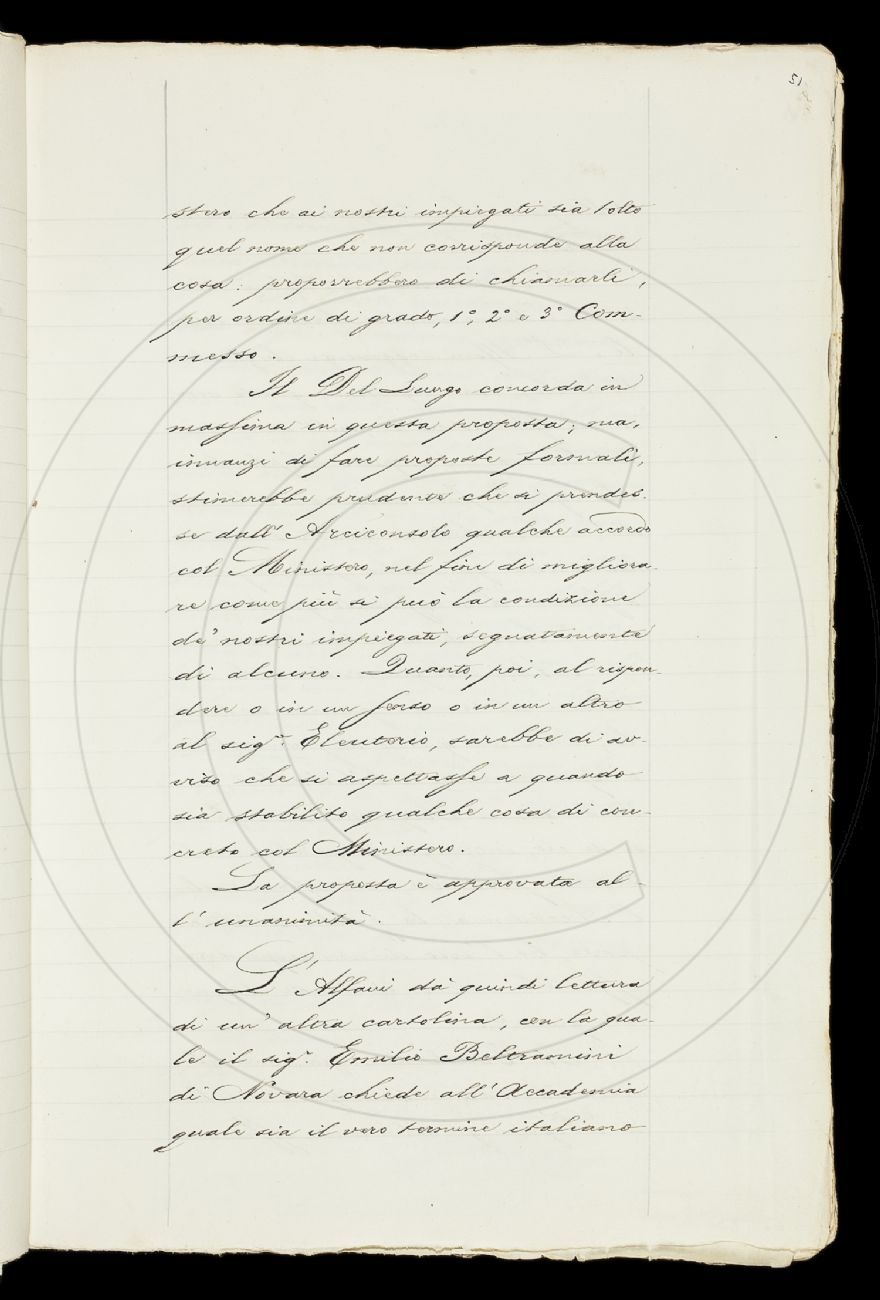 51
stero che ai nostri impiegati sia tolto
quel nome che non corrisponde alla
cosa: proporrebbero di chiamarli,
per ordine di grado, 1°, 2° e 3° Com-
messo.
Il Del Lungo concorda in
massima in questa proposta; ma,
innanzi di fare proposte formali,
stimerebbe prudente che si prendes-
se dall'Arciconsolo qualche accordo
col Ministero, nel fine di migliora-
re come più si può la condizione
de' nostri impiegati, segnatamente
di alcuno. Quanto, poi, al rispon-
dere o in un senso o in un altro
al sig.r Eleuterio, sarebbe di av-
viso che si aspettasse a quando
sia stabilito qualche cosa di con-
creto col Ministero.
La proposta è approvata al-
l'unanimità.
L'Alfani dà quindi lettura
di un'altra cartolina, con la qua-
le il sig.r Emilio Beltramini
di Novara chiede all'Accademia
quale sia il vero termine italiano